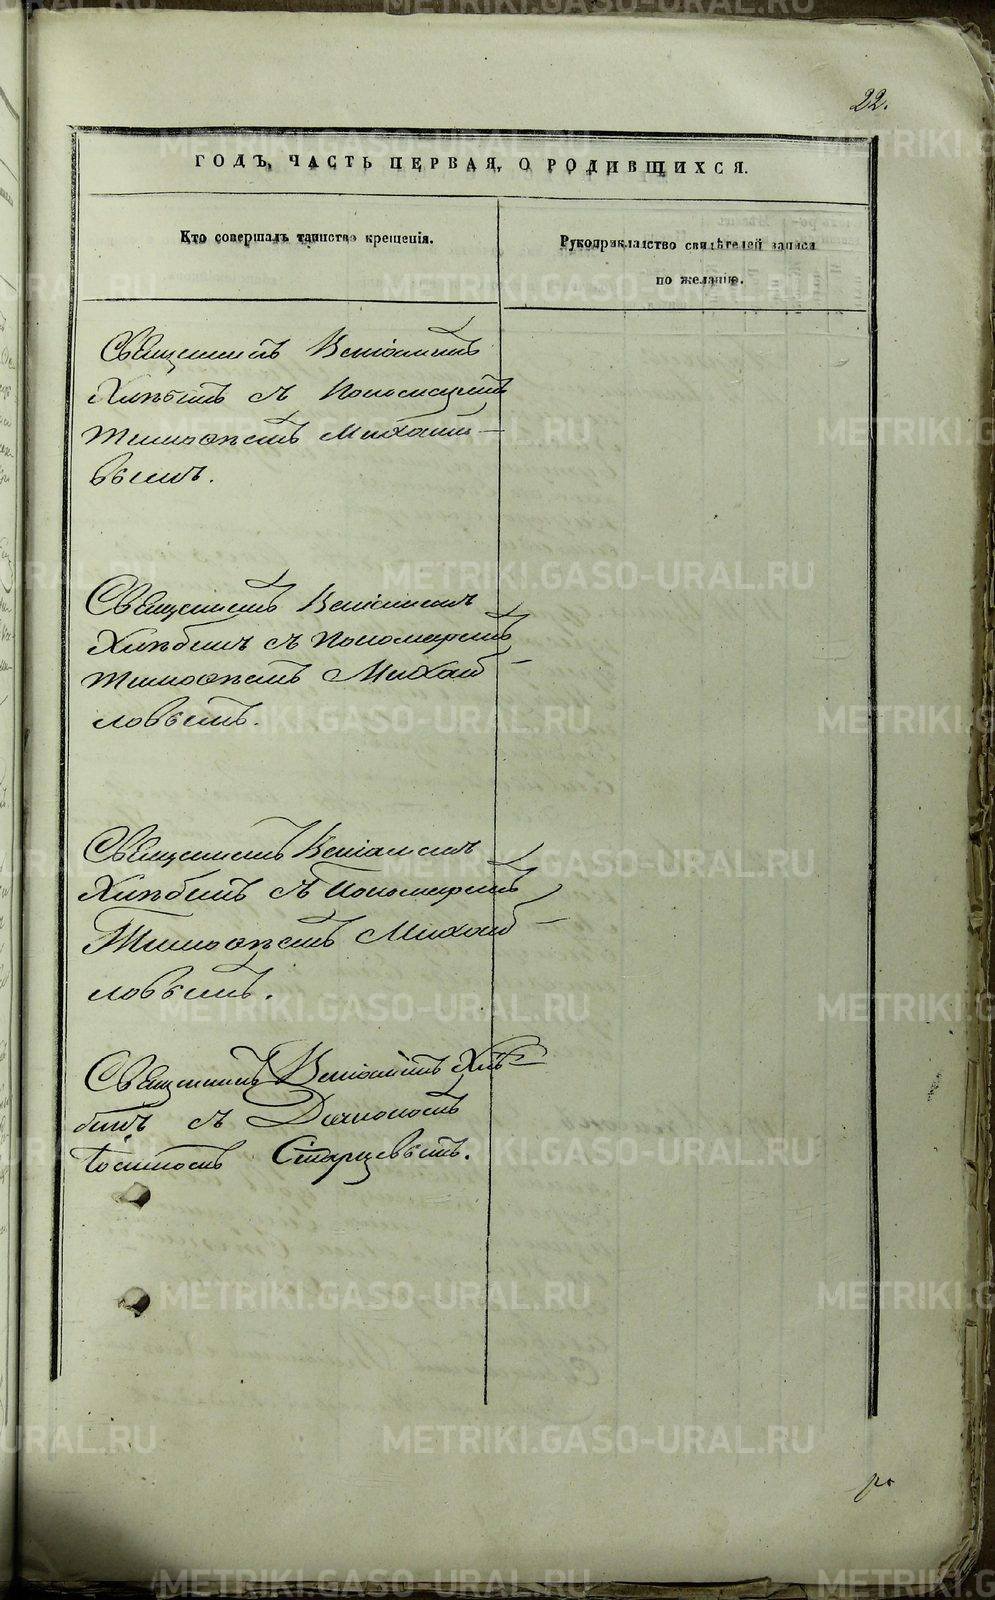 22.
ГОДЪ, ЧАСТЬ ПЕРВАЯ, О РОДИВШИХСЯ.
Кто совершалъ таинство крещенія.
Рукоприкладство свидѣтелей записи
по желанію.
Священникъ Веніаминъ
Хлѣбинъ съ Пономаремъ
Тимоѳеемъ Михайло-
вымъ.
Священникъ Веніаминъ
Хлѣбинъ съ Пономаремъ
Тимоѳеемъ Михай-
ловымъ.
Священникъ Веніаминъ
Хлѣбинъ съ Пономаремъ
Тимоѳеемъ Михай-
ловымъ.
Священникъ Веніаминъ Хлѣ-
бинъ съ Діакономъ
Старцевымъ.
METRIKI.GASO-URAL.RU